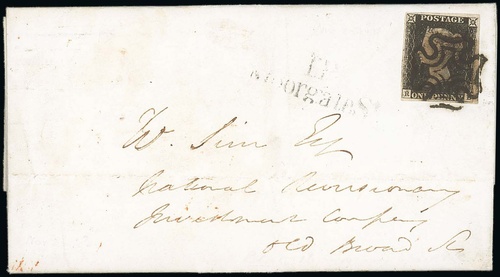 POSTAGE
ONE PENNY
W. Sim Esq
National Reversionary
Investment Company
Old Broad St